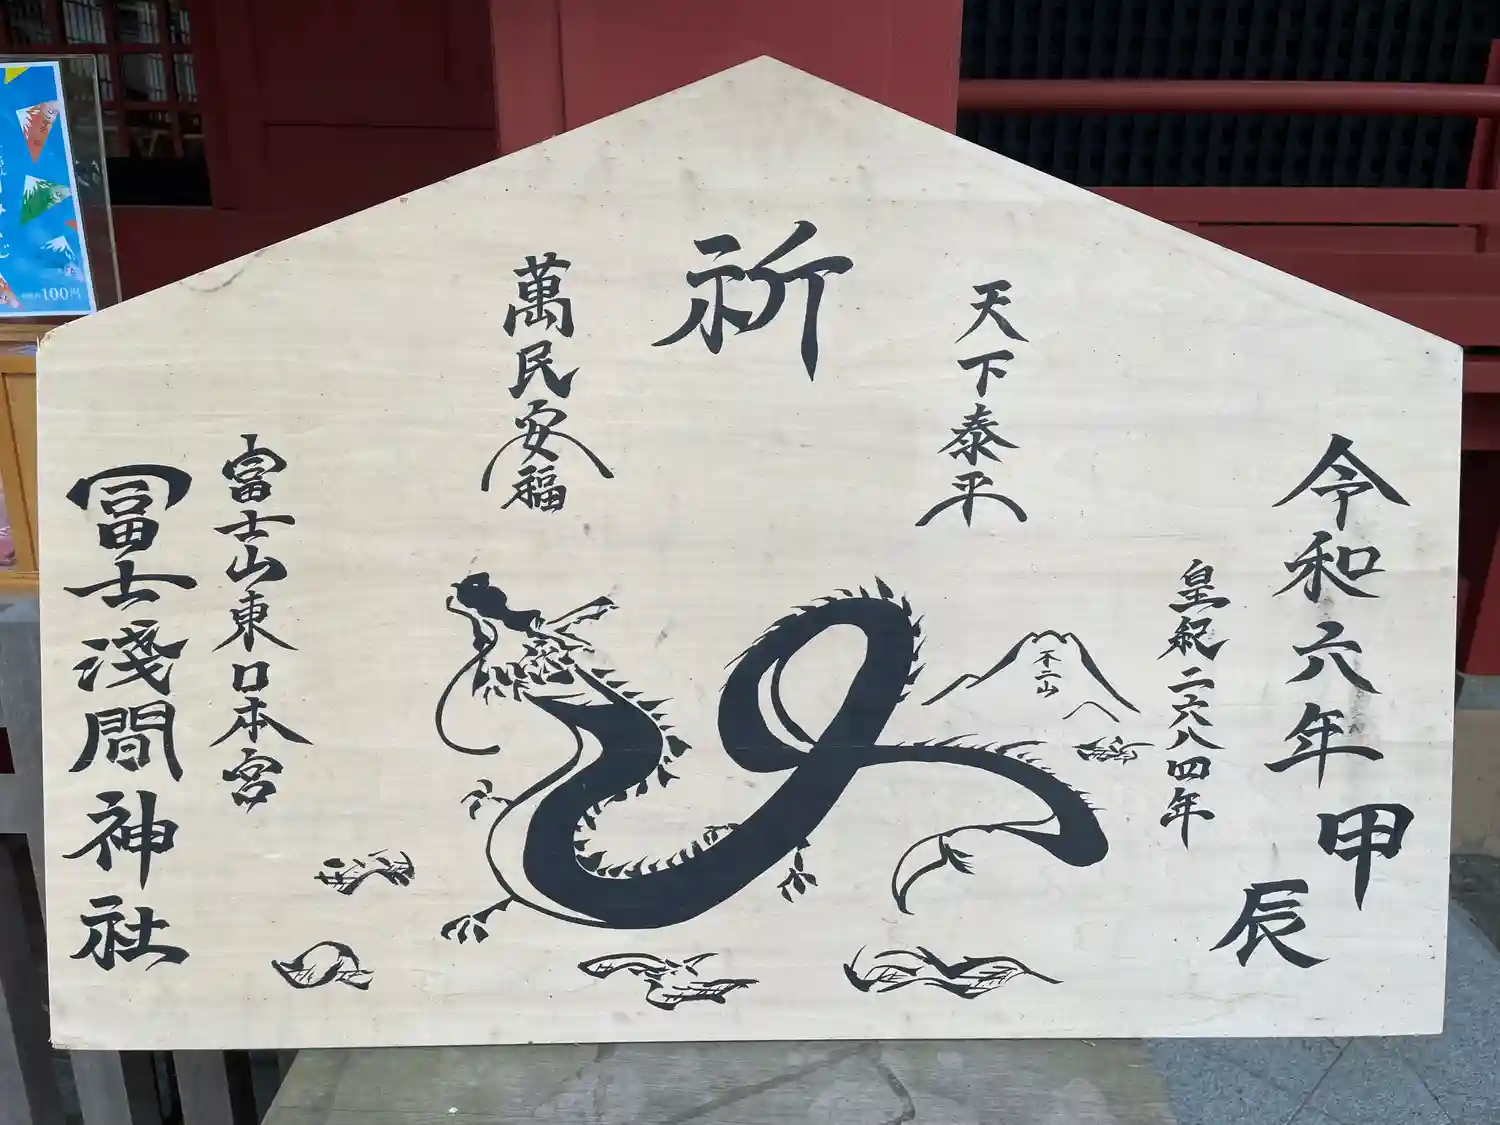 祈
天下泰平
萬民安福
令和六年甲辰
皇紀二六八四年
不二山
富士山東口本宮
冨士淺間神社
100円